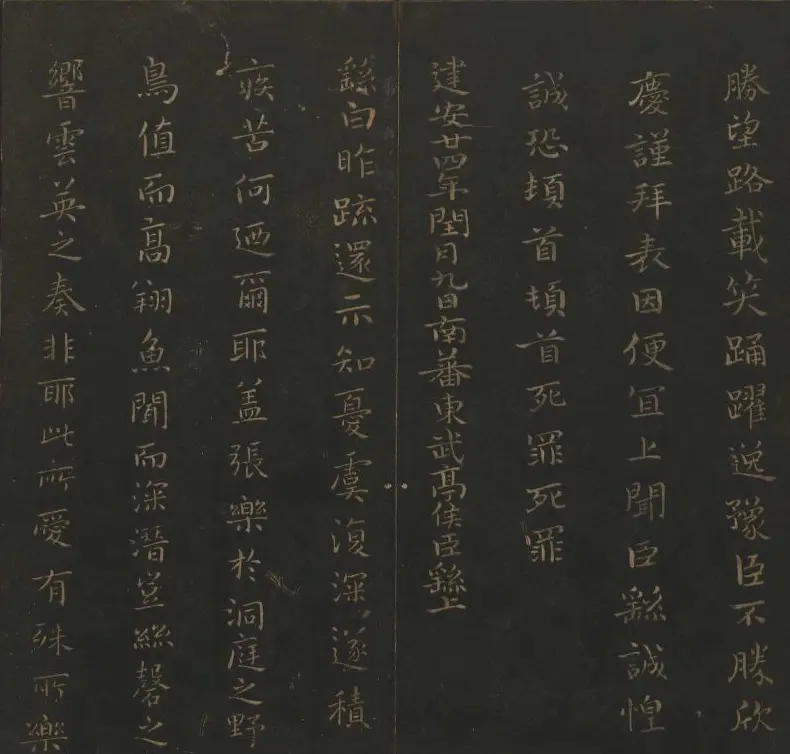 勝望路載笑踊躍逸豫臣不勝欣
慶謹拜表因便宜上聞臣繇誠惶
誠恐頓首頓首死罪死罪
建安廿四年閏月九日南蕃東武亭侯臣繇上
繇白昨疏還示知憂虞復深遂積
疾苦何迺爾耶盖張樂於洞庭之野
鳥值而高翔魚聞而深潛豈絲磬之
響雲英之奏非耶此所愛有殊所樂